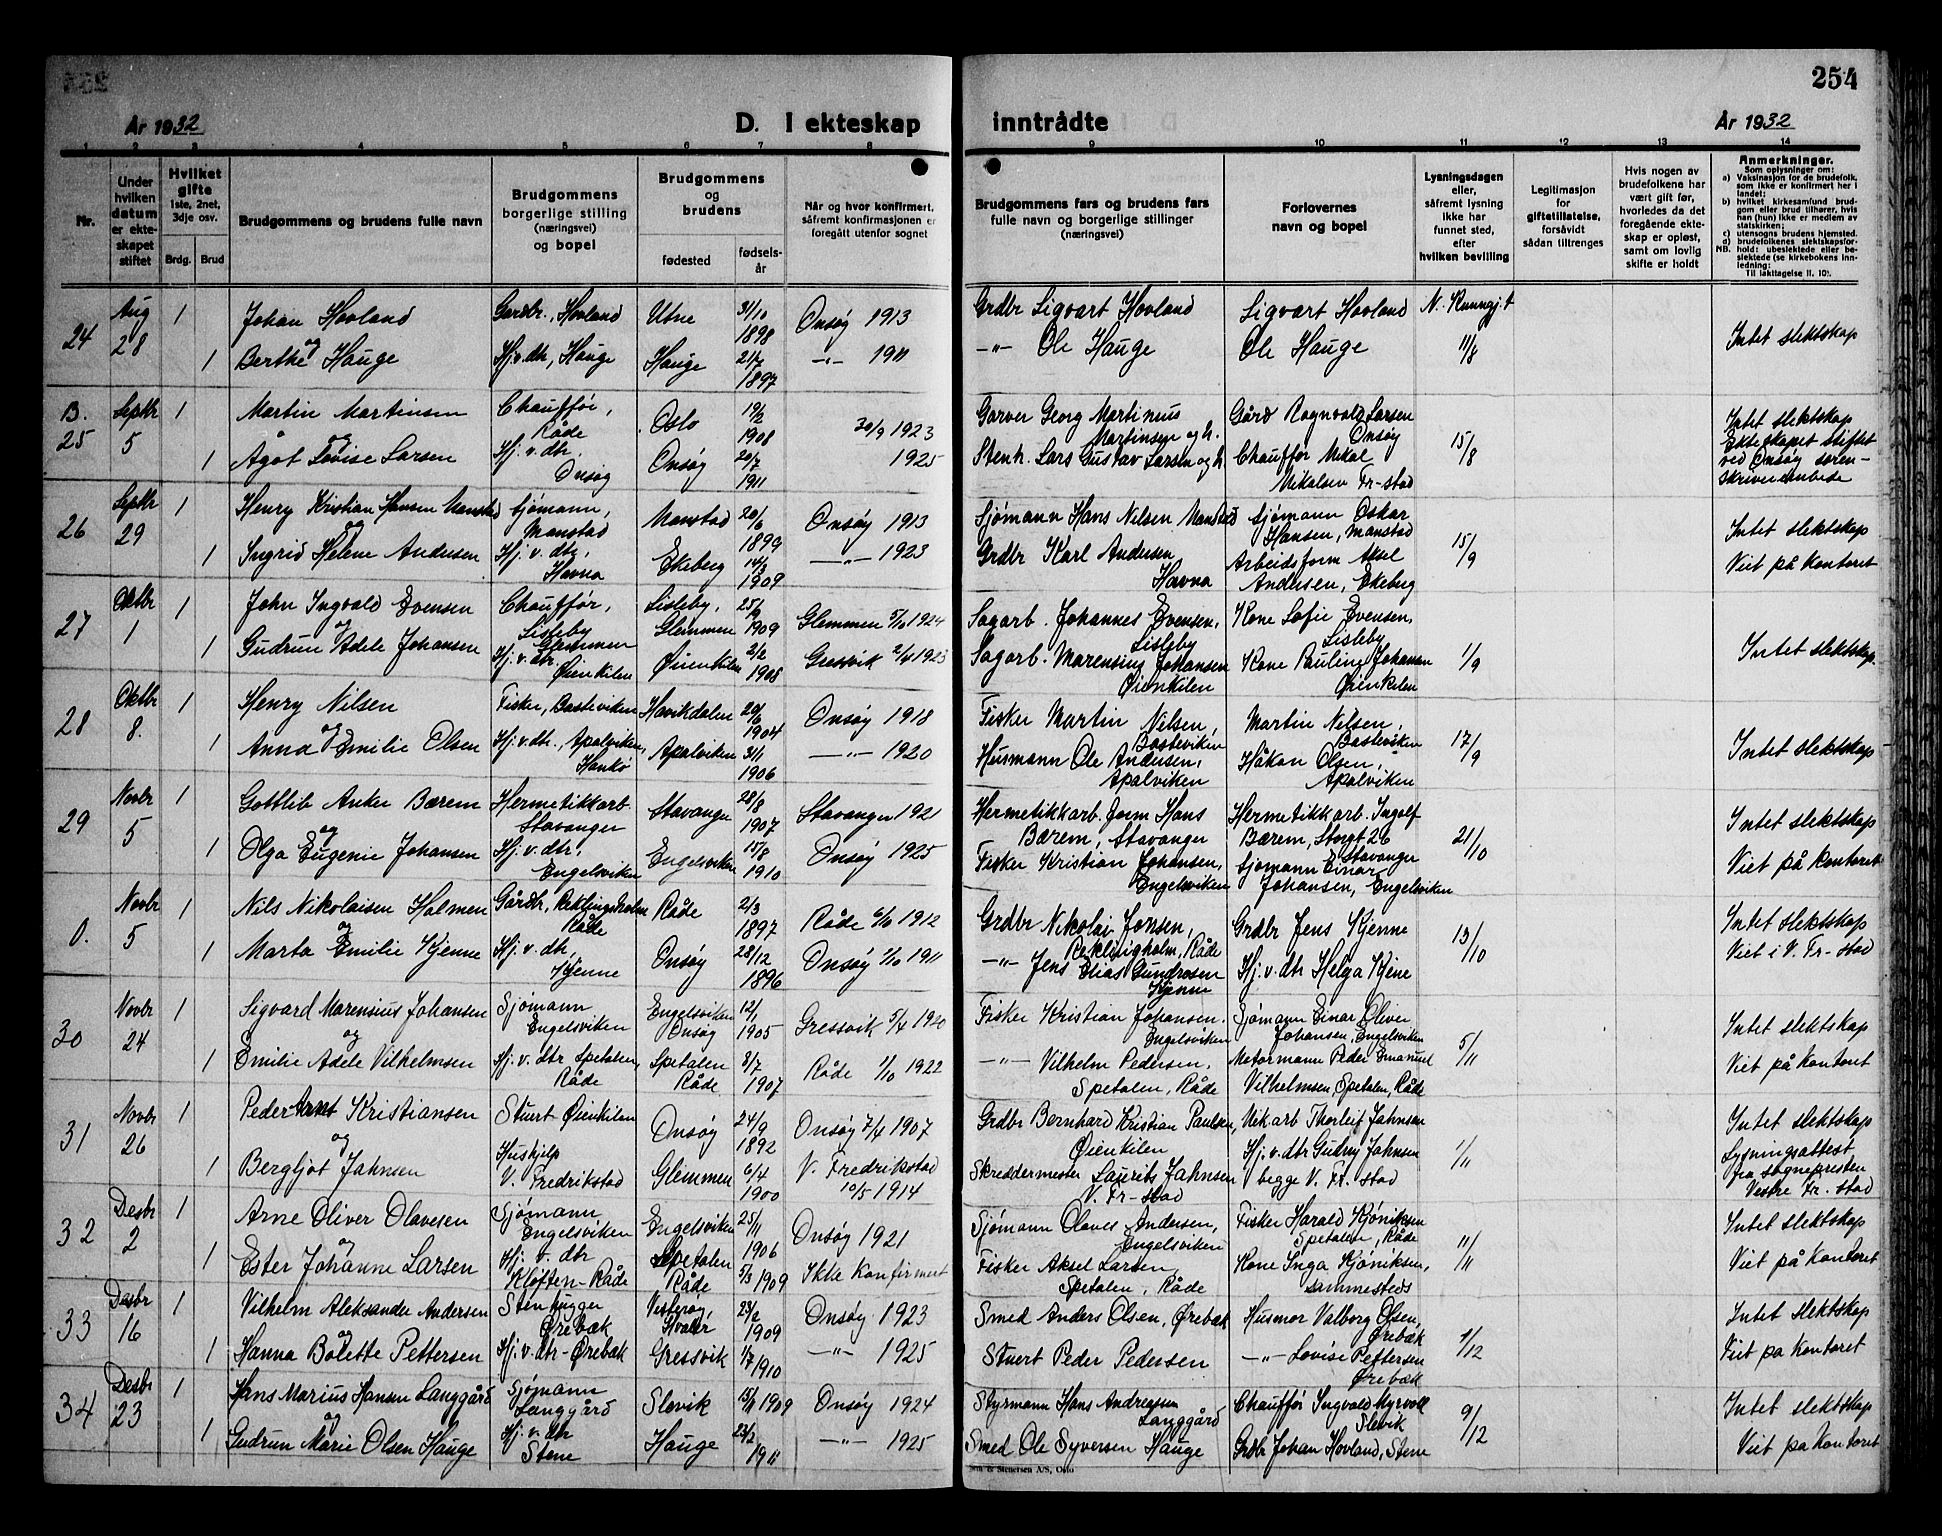 254
År 1932
D. I ekteskap
inntrådte
År 1932
1 2 3 4 5 6 7 8 9 10 11 12 13 14
Nr.
Under hvilken datum er ekteskapet stiftet
Hvilket gifte 1ste, 2net, 3dje osv.
Brdg. Brud
Brudgommens og brudens fulle navn
Brudgommens borgerlige stilling (næringsvei) og bopel
Brudgommens og brudens
fødested
fødselsår
Når og hvor konfirmert, såfremt konfirmasjonen er foregått utenfor sognet
Brudgommens fars og brudens fars fulle navn og borgerlige stillinger (næringsvei)
Forlovernes navn og bopel
Lysningsdagen eller, såfremt lysning ikke har funnet sted, efter hvilken bevilling
Legitimasjon for giftetillatelse, forsåvidt sådan tiltrenges
Hvis nogen av brudefolkene har vært gift før, hvorledes da det foregående ekteskap er opløst, samt om lovlig skifte er holdt
Anmerkninger.
Som oplysninger om:
a) Vaksinasjon for de brudefolk, som ikke er konfirmert her i landet;
b) hvilket kirkesamfund brudgom eller brud tilhører, hvis han (hun) ikke er medlem av statskirken;
c) utensogns brudens hjemsted.
d) brudefolkenes slektskapsforhold: ubeslektede eller beslektede (se kirkebokens innledning:
NB. Til iakttagelse II. 10).
24 Aug 28 1 Johan Hovland Gardbr., Hovland Utne 31/10 1898 Onsøy 1913 Grdbr Sigvart Hovland Sigvart Hovland N. Kunngj.t 11/8 Intet slektskap
og
1 Berthe Hauge Hj.v.dtr, Hauge Hauge 21/7 1897 -"- 1911 -"- Ole Hauge Ole Hauge
B. 25 Septbr 5 1 Martin Martinsen Chauffør, Råde Oslo 19/2 1908 30/9 1923 Garver Georg Martinius Martinsen og h. Gård Ragnvald Larsen Onsøy 15/8 Intet slektskap Ekteskapet stiftet ved Onsøy sorenskriverembede
og
1 Ågot Lovise Larsen Hj.v.dtr. Onsøy Onsøy 20/7 1911 1925 Stenh. Lars Gustav Larsen og h. Chauffør Mikal Mikalsen Fr-stad
26 Septbr 29 1 Henry Kristian Hansen Manstad Sjømann, Manstad Manstad 20/6 1899 Onsøy 1913 Sjømann Hans Nilsen Manstad Sjømann Oskar Hansen, Manstad 15/9 Intet slektskap
og
1 Ingrid Helene Andersen Hj.v.dtr, Havna Ekeberg 14/3 1909 -"- 1923 Grdbr Karl Andersen Havna Arbeidsform. Aksel Andersen, Ekeberg Viet på kontoret
27 Oktbr 1 1 John Ingvald Evensen Chauffør, Lisleby Glemmen Lisleby, Glemmen 25/9 1909 Glemmen 5/10 1924 Sagarb. Johannes Evensen, Lisleby Kone Sofie Evensen, Lisleby 1/9 Intet slektskap.
og
1 Gudrun Adele Johansen Hj.v.dtr. Øienkilen Øienkilen 2/2 1908 Gressvik 2/4 1923 Sagarb. Marensius Johansen Øienkilen Kone Pauline Johansen Øienkilen
28 Oktbr 8. 1 Henry Nilsen Fisker, Basteviken Havikdalen 20/6 1904 Onsøy 1918 Fisker Martin Nilsen, Basteviken Martin Nilsen, Basteviken 17/9 Intet slektskap
og
1 Anna Emilie Olsen Hj.v.dtr., Apalviken, Hankø Apalviken 31/1 1906 -"- 1920 Husmann Ole Andersen, Apalviken Håkon Olsen, Apalviken
29 Novbr 5 1 Gottlib Anker Bærem Hermetikkarb Stavanger Stavanger 28/8 1907 Stavanger 1921 Hermetikkarb. form Hans Bærem, Stavanger Hermetikkarb. Ingolf Bærem, Storgt 26 Stavanger 21/10 Intet slektskap
og
1 Olga Eugenie Johansen Hj.v.dtr, Engelsviken Engelsviken 15/8 1910 Onsøy 1925 Fisker Kristian Johansen, Engelsviken Sjømann Einar Johansen, Engelsviken Viet på kontoret
0. Novbr 5 1 Nils Nikolaisen Holmen Gårdbr, Råde Råde 2/3 1897 Råde 6/10 1912 Grdbr Nikolai Jonsen, Råde Grdbr Jens Kjenne 13/10 Intet slektskap
og
1 Marta Emilie Kjenne Hj.v.dtr, Kjenne Onsøy 28/12 1896 Onsøy 1/10 1911 -"- Jens Elias Gundrosen Kjenne Hj.v.dtr Helga Kjene Viet i V. Fr-stad
30 Novbr 24 1 Sigvard Marensius Johansen Sjømann Engelsviken Engelsviken Onsøy 12/1 1905 Gressvik 5/4 1920 Fisker Kristian Johansen. Engelsviken Sjømann Einar Oliver Johansen, Engelsviken 5/11 Intet slektskap
og
1 Emilie Adele Vilhelmsen Hj.v.dtr Spetalen, Råde Spetalen Råde 8/7 1907 Råde 1/10 1922 -"- Vilhelm Pedersen, Spetalen, Råde Motormann Peder Emanuel Vilhelmsen, Spetalen, Råde Viet på kontoret
31 Novbr 26 1 Peder Arnt Kristiansen Stuert Øienkilen Onsøy 24/9 1892 Onsøy 7/4 1907 Grdbr Bernhard Kristian Paulsen, Øienkilen Thorleif Jahnsen 1/11 Intet slektskap
og
1 Bergljot Jahnsen Hushjelp V. Fredrikstad Glemmen 6/4 1900 V. Fredrikstad 10/5 1914 Skreddermester Laurits Jahnsen V. Fr-stad Hj.v.dtr Gudny Jahnsen begge V. Fr. stad Lysningsattest fra sognepresten Vestre Fr. stad
32 Desbr 2 1 Arne Oliver Olavesen Sjømann Engelsviken Engelsviken 25/11 1906 Onsøy 1921 Sjømann Olaves Andersen, Engelsviken Fisker Harald Kjøniksen Spetalen, Råde 11/11 Intet slektskap
og
1 Ester Johanne Larsen Hj.v.dtr Kløften-Råde Spetalen Råde 5/3 1909 Ikke konfirmert Fisker Aksel Larsen, Spetalen, Råde Kone Inga Kjøniksen, sammesteds Viet på kontoret
33 Desbr 16 1 Vilhelm Aleksander Andersen Stenhugger Ørebæk Vesterøy, Hvaler 23/2 1909 Onsøy 1923 Smed Anders Olsen, Ørebæk Husmor Valborg Olsen, Ørebæk 1/12 Intet slektskap
og
1 Hanna Bolette Pettersen Hj.v.dtr- Ørebæk Gressvik 1/7 1910 -"- 1925 Stuert Peder Pedersen -"- Lovise Pettersen Ørebæk Viet på kontoret
34 Desbr 23 1 Hans Marius Hansen Langgård Sjømann Langgård Slevik 15/11 1909 Onsøy 1924 Styrmann Hans Andreassen Langgård Chauffør Ingvald Myrvold Slevik 9/12 Intet slektskap
og
1 Gudrun Marie Olsen Hauge Hj.v.dtr Stene Hauge 23/2 1911 -"- 1925 Smed Ole Syversen Hauge Grdbr Johan Hovland, Stene Viet på kontoret
& Stenersen A/S, Oslo